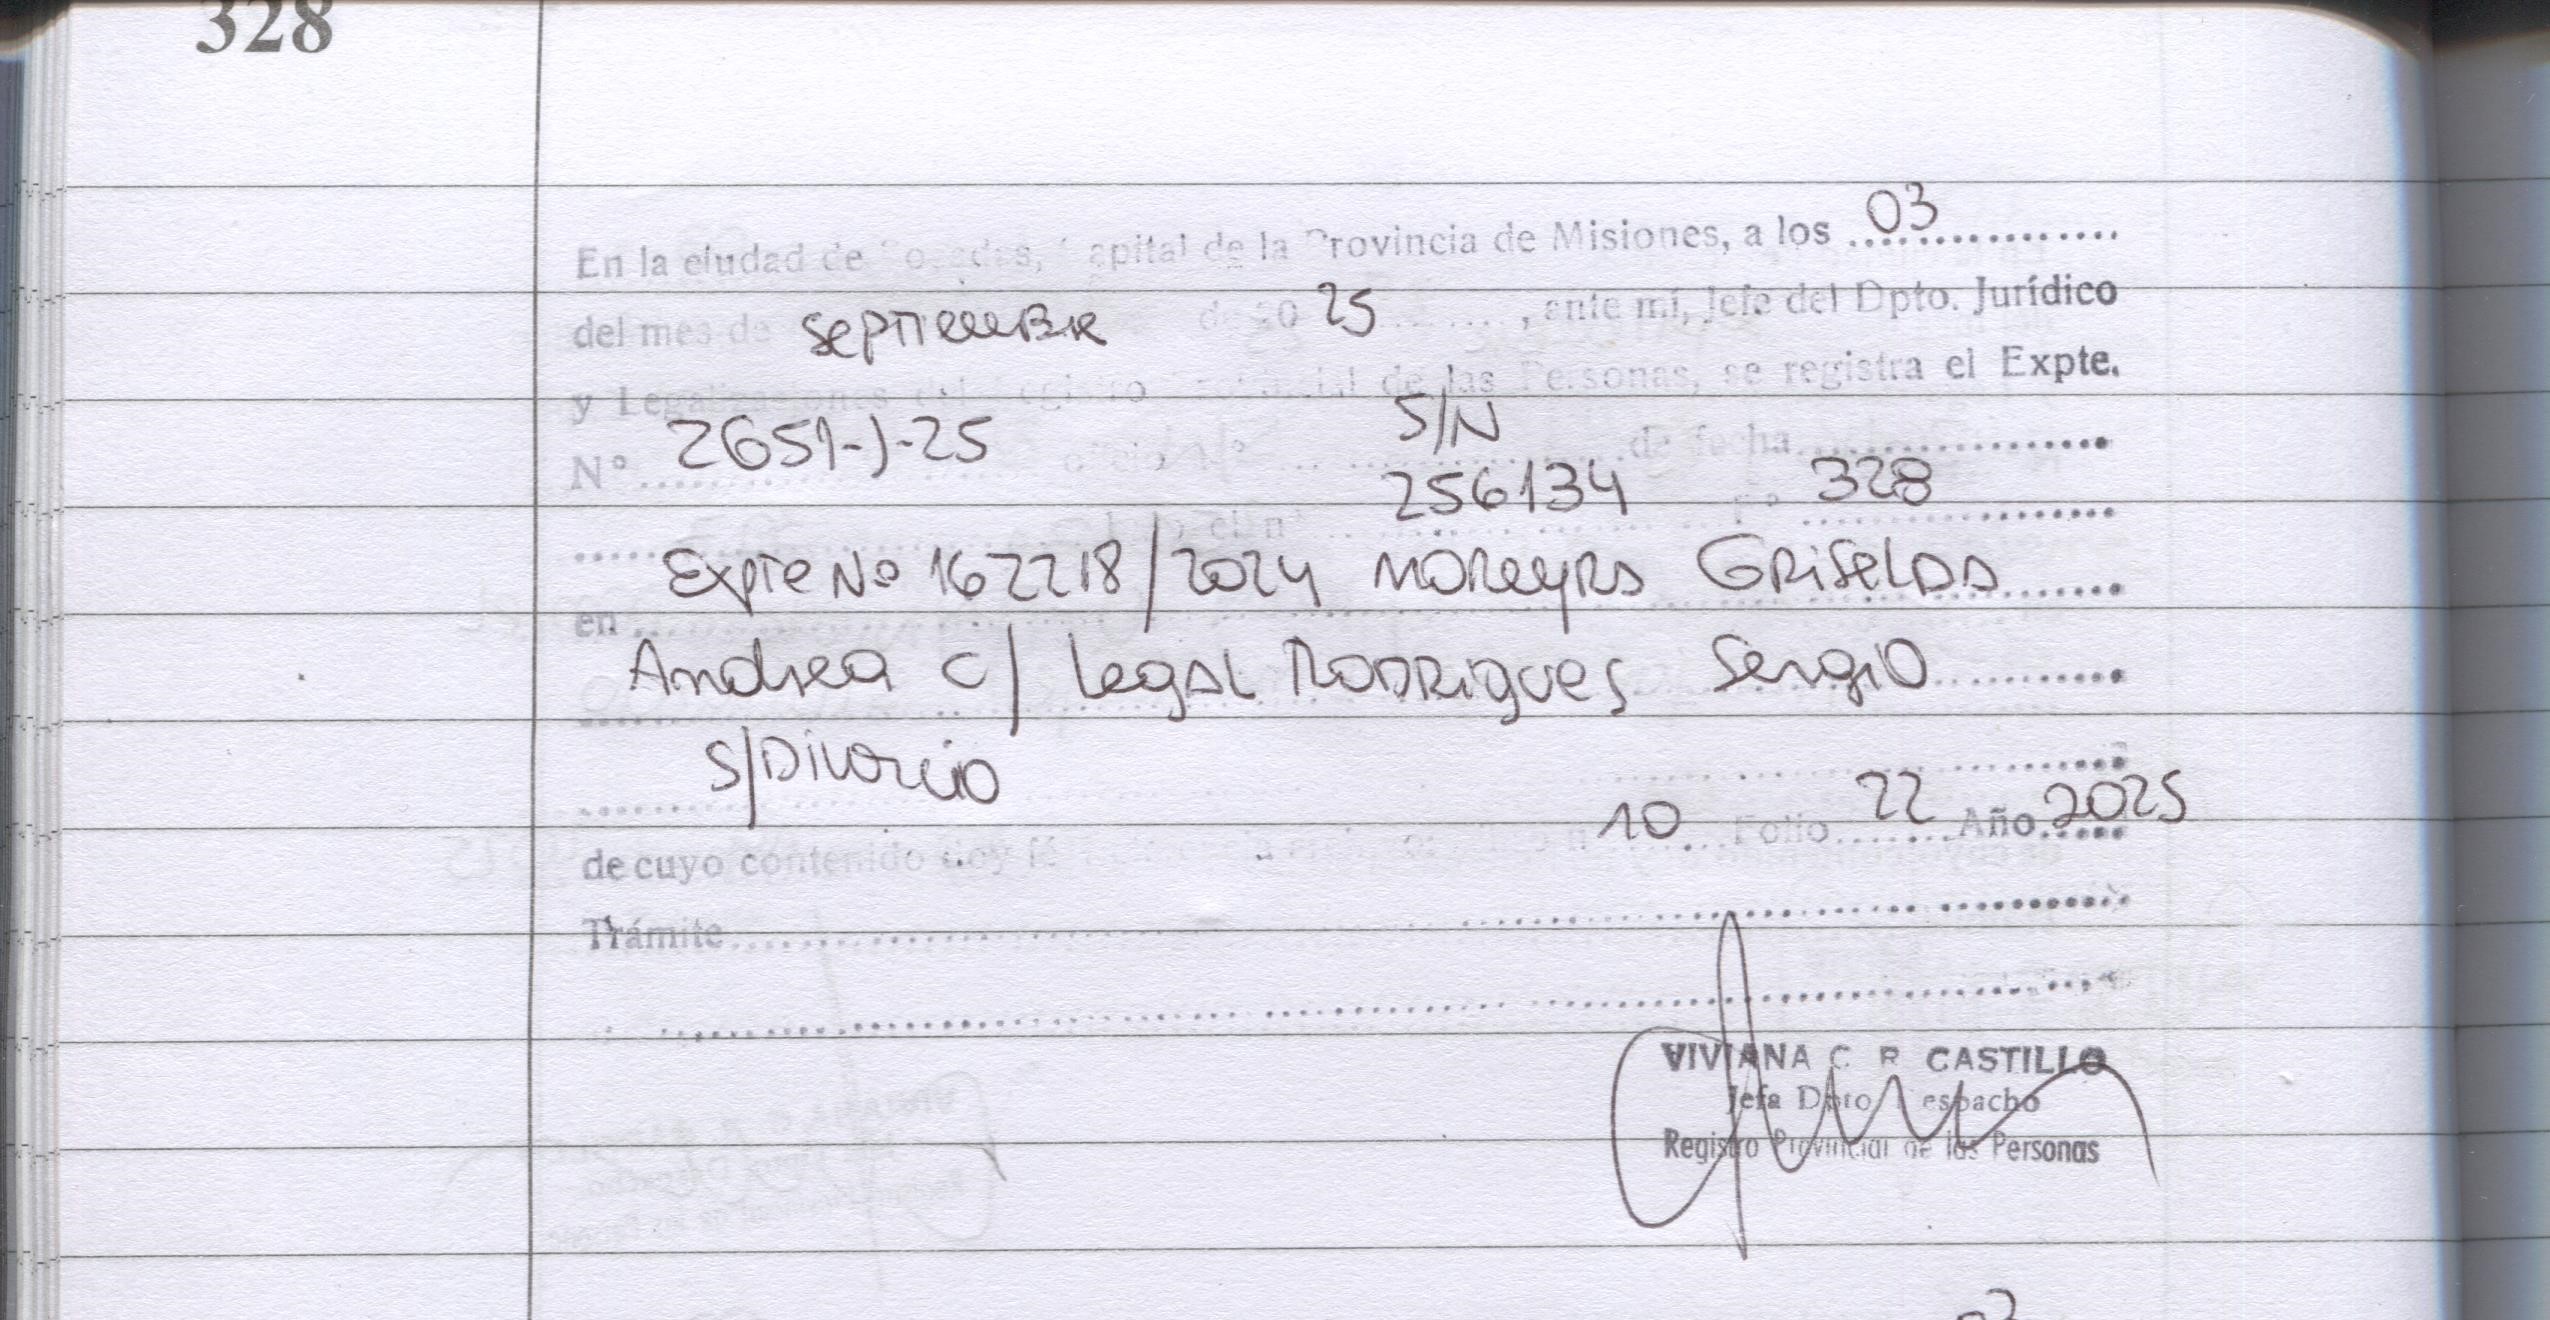 328
En la ciudad de Posadas, Capital de la Provincia de Misiones, a los 03
del mes de septiembre de 20 25, ante mí, Jefe del Dpto. Jurídico
y Legalizaciones del Registro Provincial de las Personas, se registra el Expte.
Nº 2651-J-25 S/N de fecha
256134 328
en Expte Nº 162218/2024 Moreyra Griselda
Andrea c/ Legal Rodrigues Sergio
s/Divorcio
de cuyo contenido doy fé 10 Folio 22 Año 2025
Trámite
VIVIANA C. R. CASTILLO
Jefa Dpto Despacho
Registro Provincial de las Personas